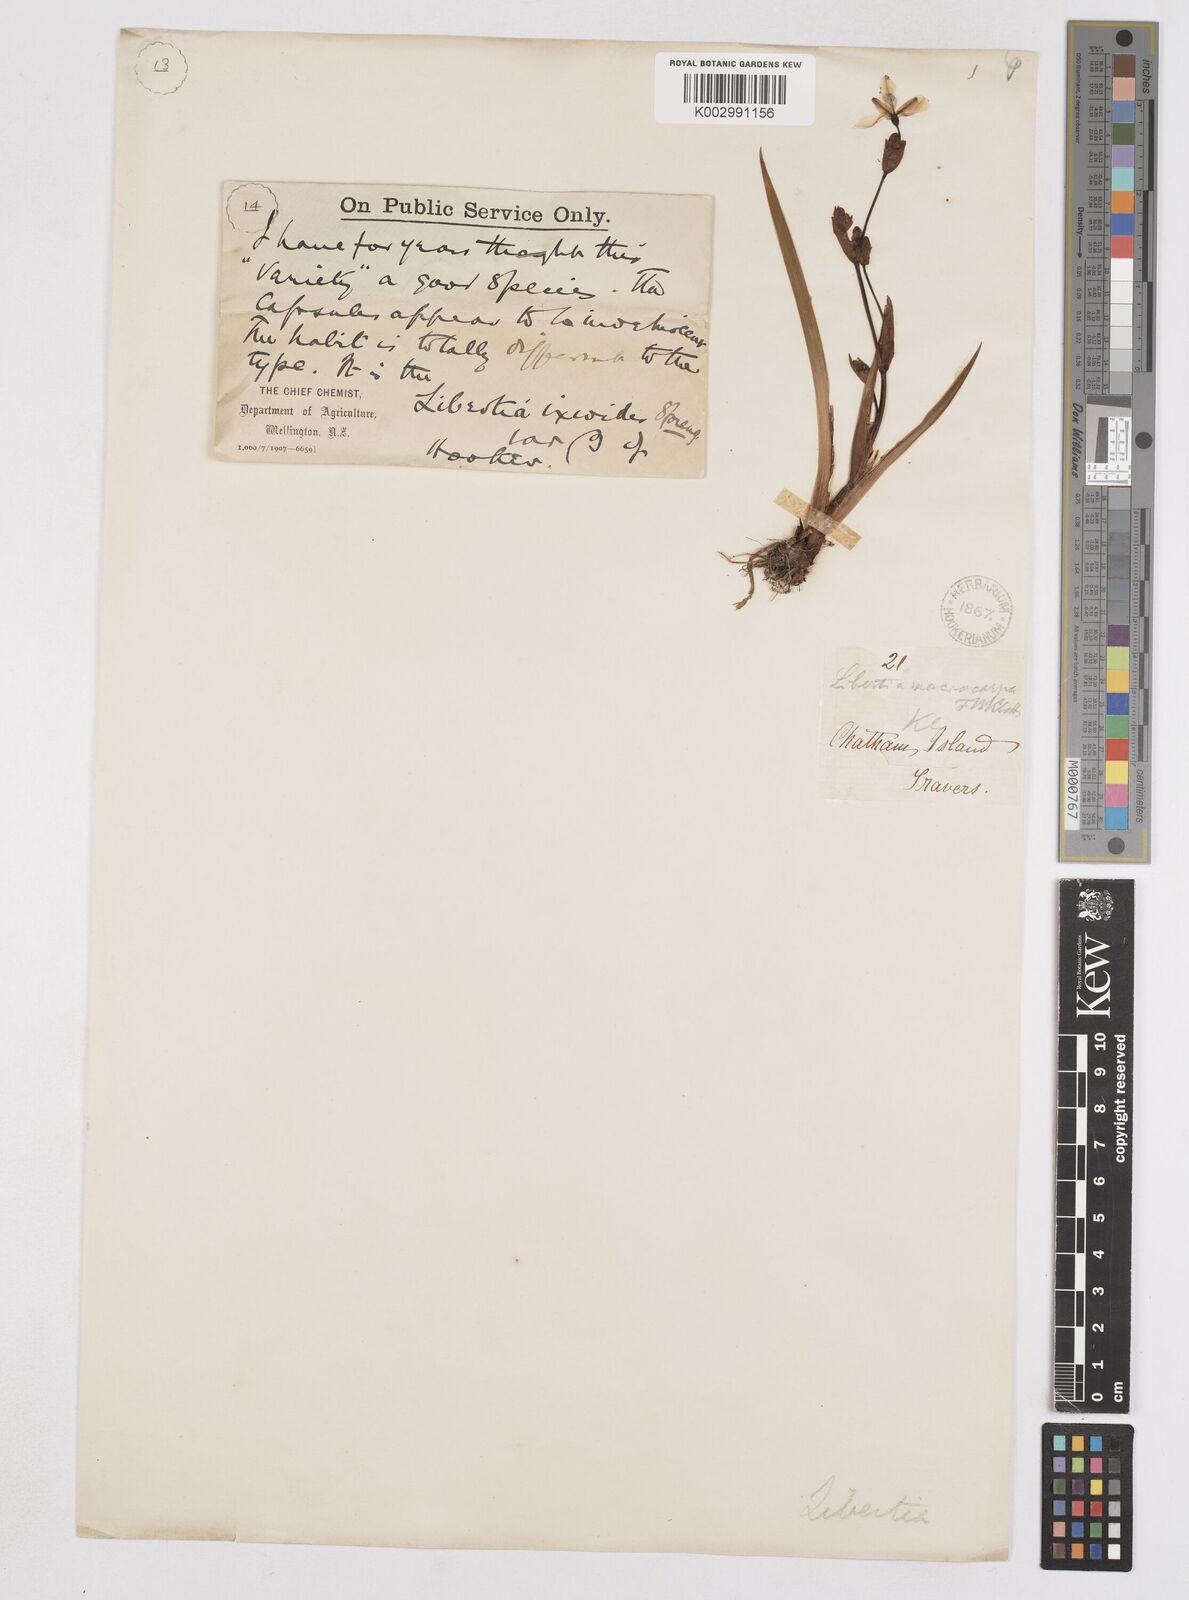 13
ROYAL BOTANIC GARDENS KEW
K002991156
14
On Public Service Only.
I have for years thought this
"Variety" a good species. The
Capsules appear to be indehiscent
The habit is totally different to the
type. It is the
THE CHIEF CHEMIST,
Department of Agriculture,
Wellington, N.Z.
1,000/7/1907—6659]
Libertia ixioides Spreng
var β of
Hooker.
HERBARIUM
1867.
HOOKERIANUM
21
Libertia macrocarpa
Klatt
Chatham Island
Travers.
Libertia
inches
centimetres
Density
Don Williams
M000767
Kew
Royal Botanic Gardens
copyright reserved
0 1 2 3 4 5 6 7 8 9 10
cm